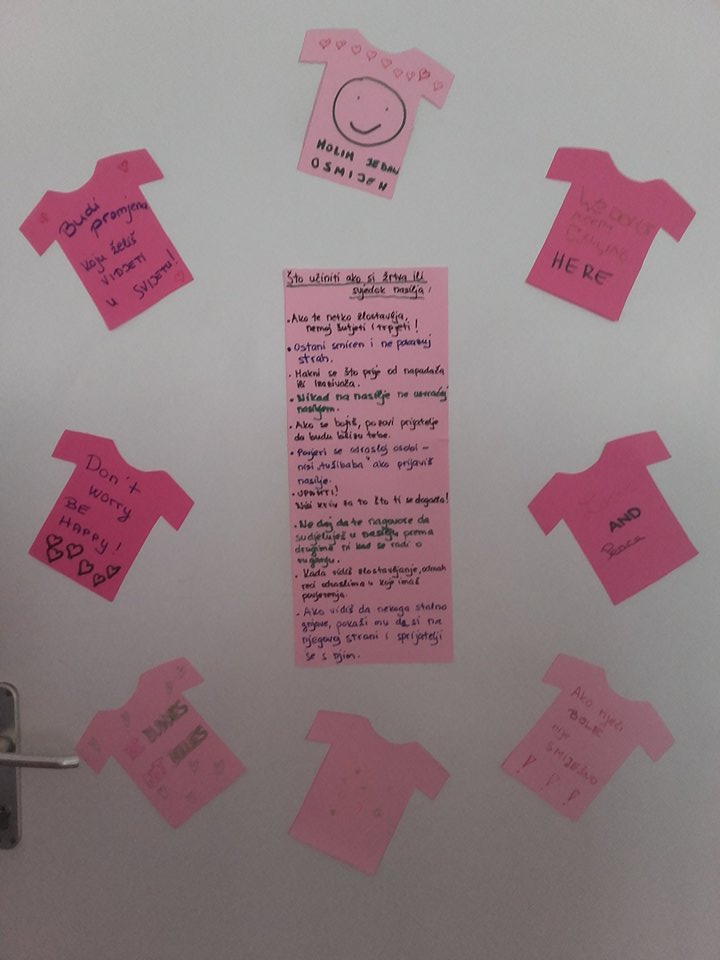 MOLIM JEDAN
OSMIJEH
Budi
promjena
koju želiš
VIDJETI
U SVIJETU!
HERE
Što učiniti ako si žrtva ili
svjedok nasilja!
• Ako te netko zlostavlja,
nemoj šutjeti i trpjeti!
• Ostani smiren i ne pokazuj
strah.
• Makni se što prije od napadača
ili izazivača.
• Nikad na nasilje ne uzvraćaj
nasiljem.
• Ako se bojiš, pozovi prijatelje
da budu blizu tebe.
• Povjeri se odrasloj osobi -
nisi "tužibaba" ako prijaviš
nasilje.
• UPAMTI!
Nisi kriv za to što ti se događa!
• Ne daj da te nagovore da
sudjeluješ u nasilju prema
drugima ni kad se radi o
ruganju.
• Kada vidiš zlostavljanje, odmah
reci odraslima u koje imaš
povjerenja.
• Ako vidiš da nekoga stalno
gnjave, pokaži mu da si na
njegovoj strani i sprijatelji
se s njim.
Don't
worry
BE
HAPPY!
AND
Peace
BE BUDDIES
NOT BULLIES
Ako riječi
BOLE
nije
SMIJEŠNO
! ! !